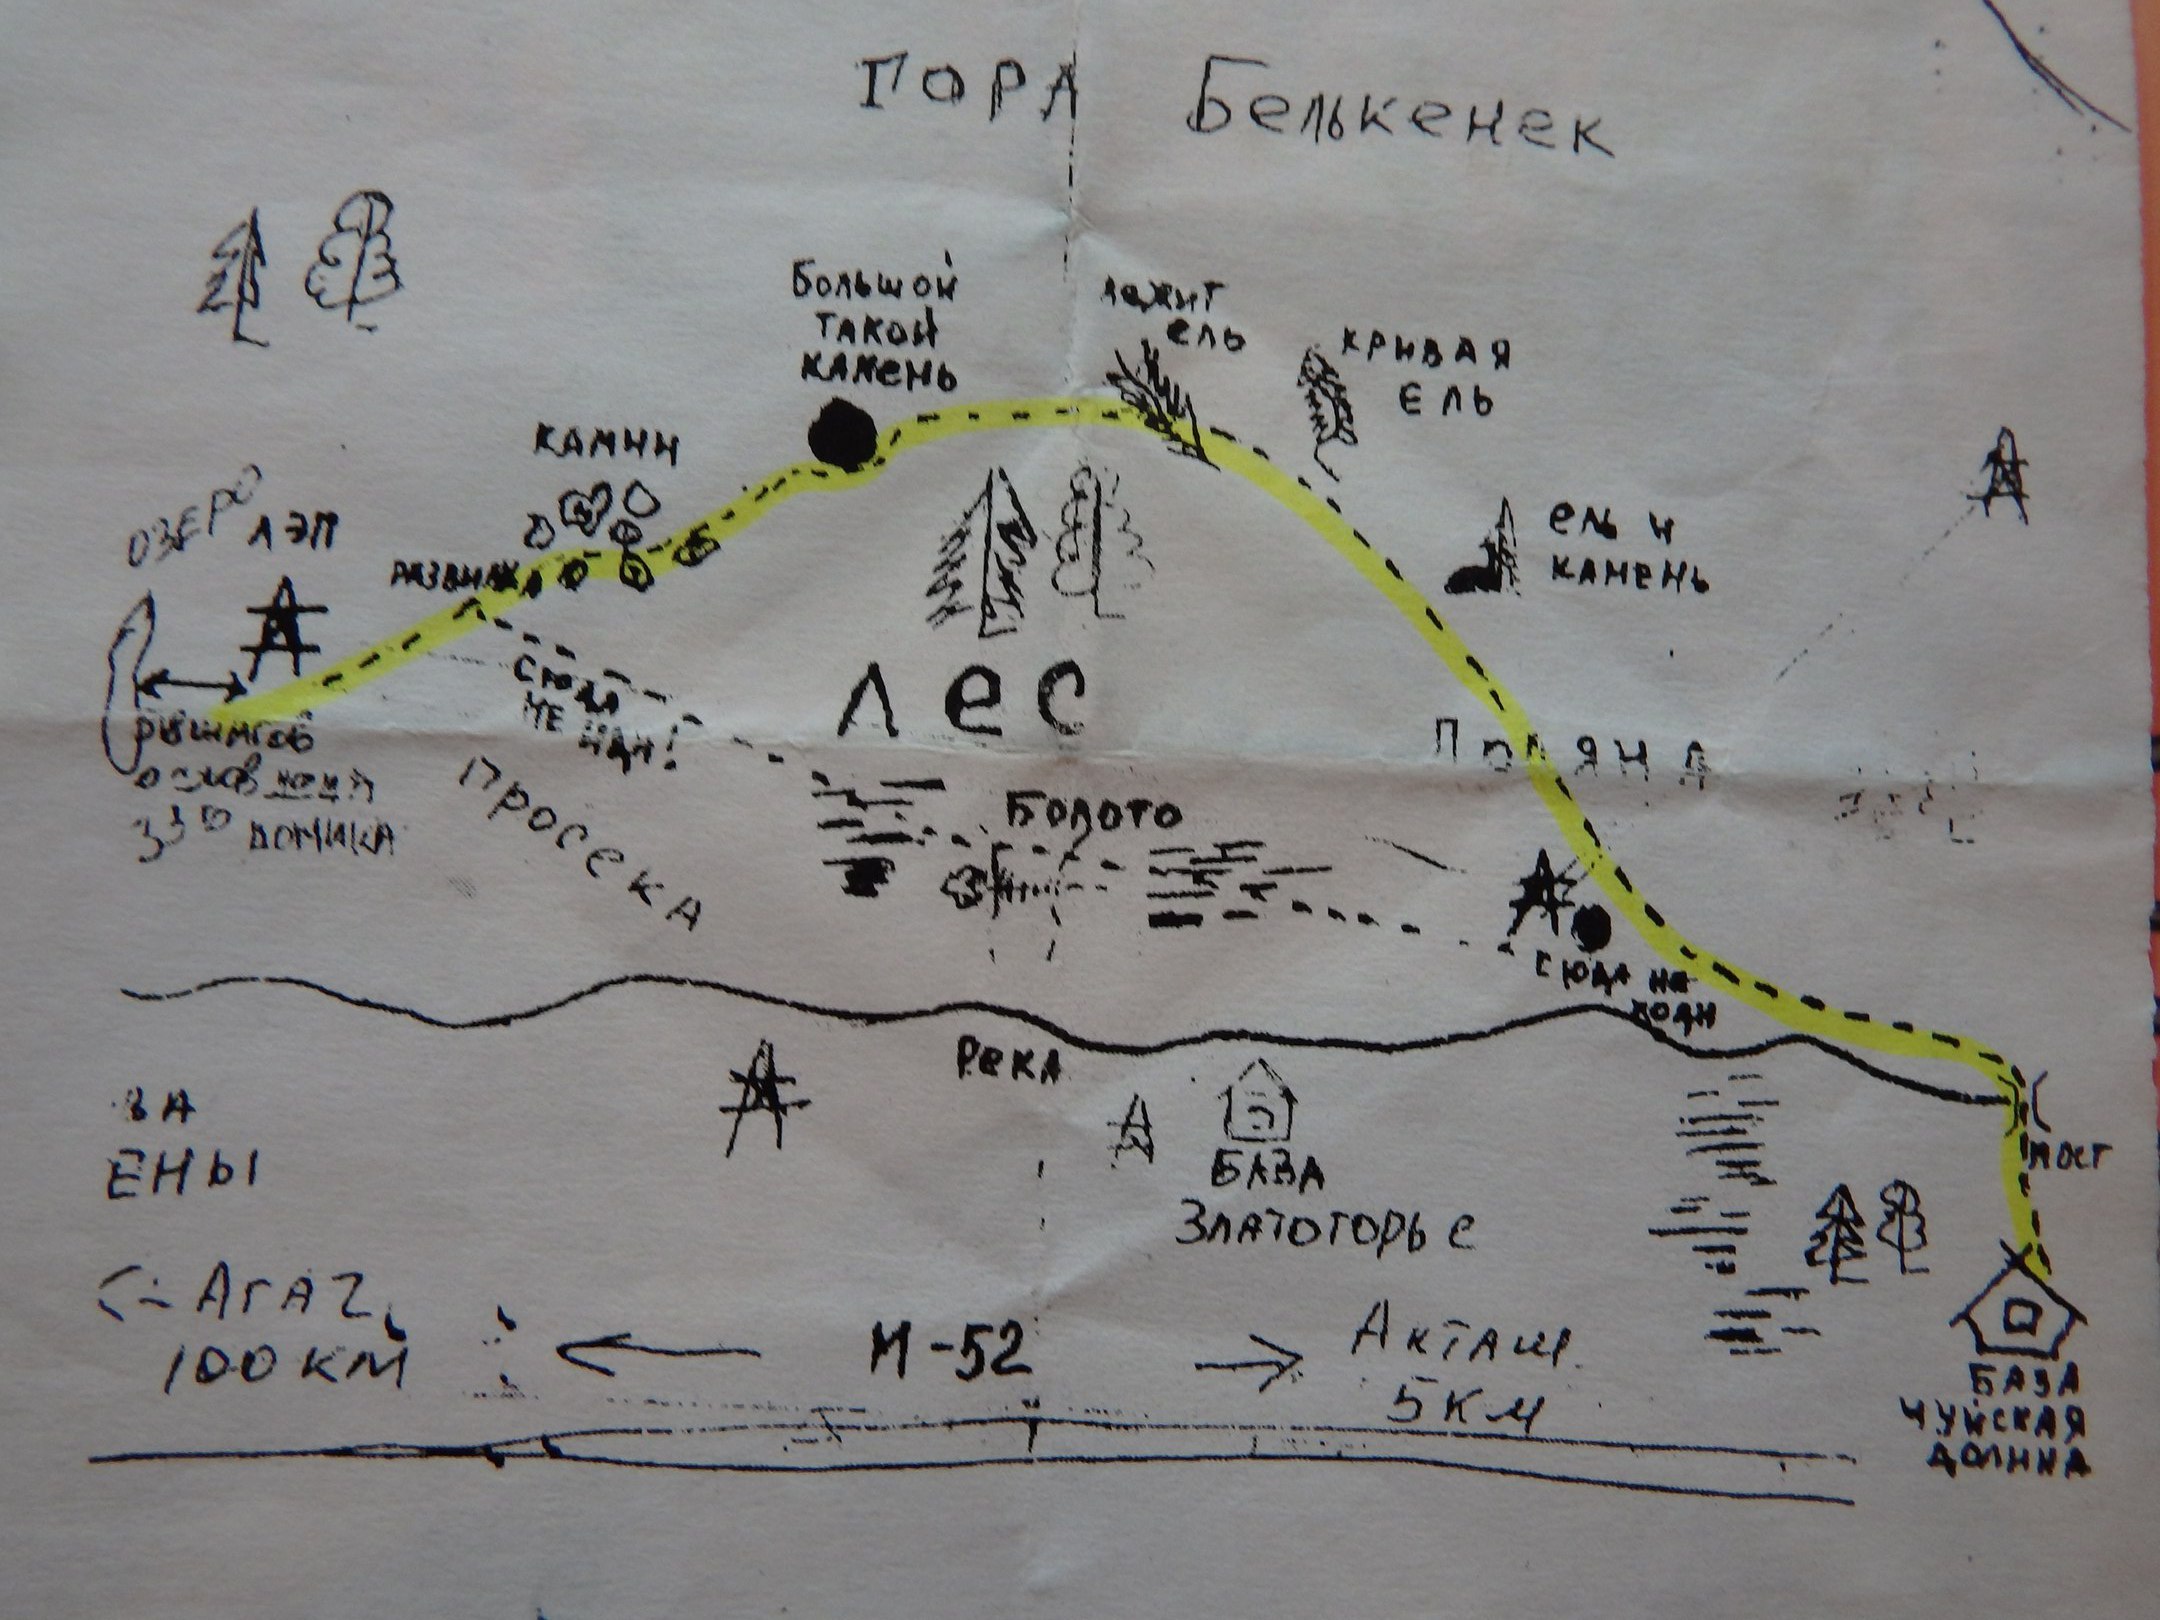 ГОРА Белькенек
Большой
такой
камень
лежит
ель
кривая
ель
камни
ель и
камень
озеро
ЛЭП
развилка
сюда
не иди!
Лес
Поляна
домика
Просека
Болото
сюда не
ходи
Река
мост
ва
ены
База
Златогорье
100 км
М-52
Акташ
5 км
База
Чуйская
долина